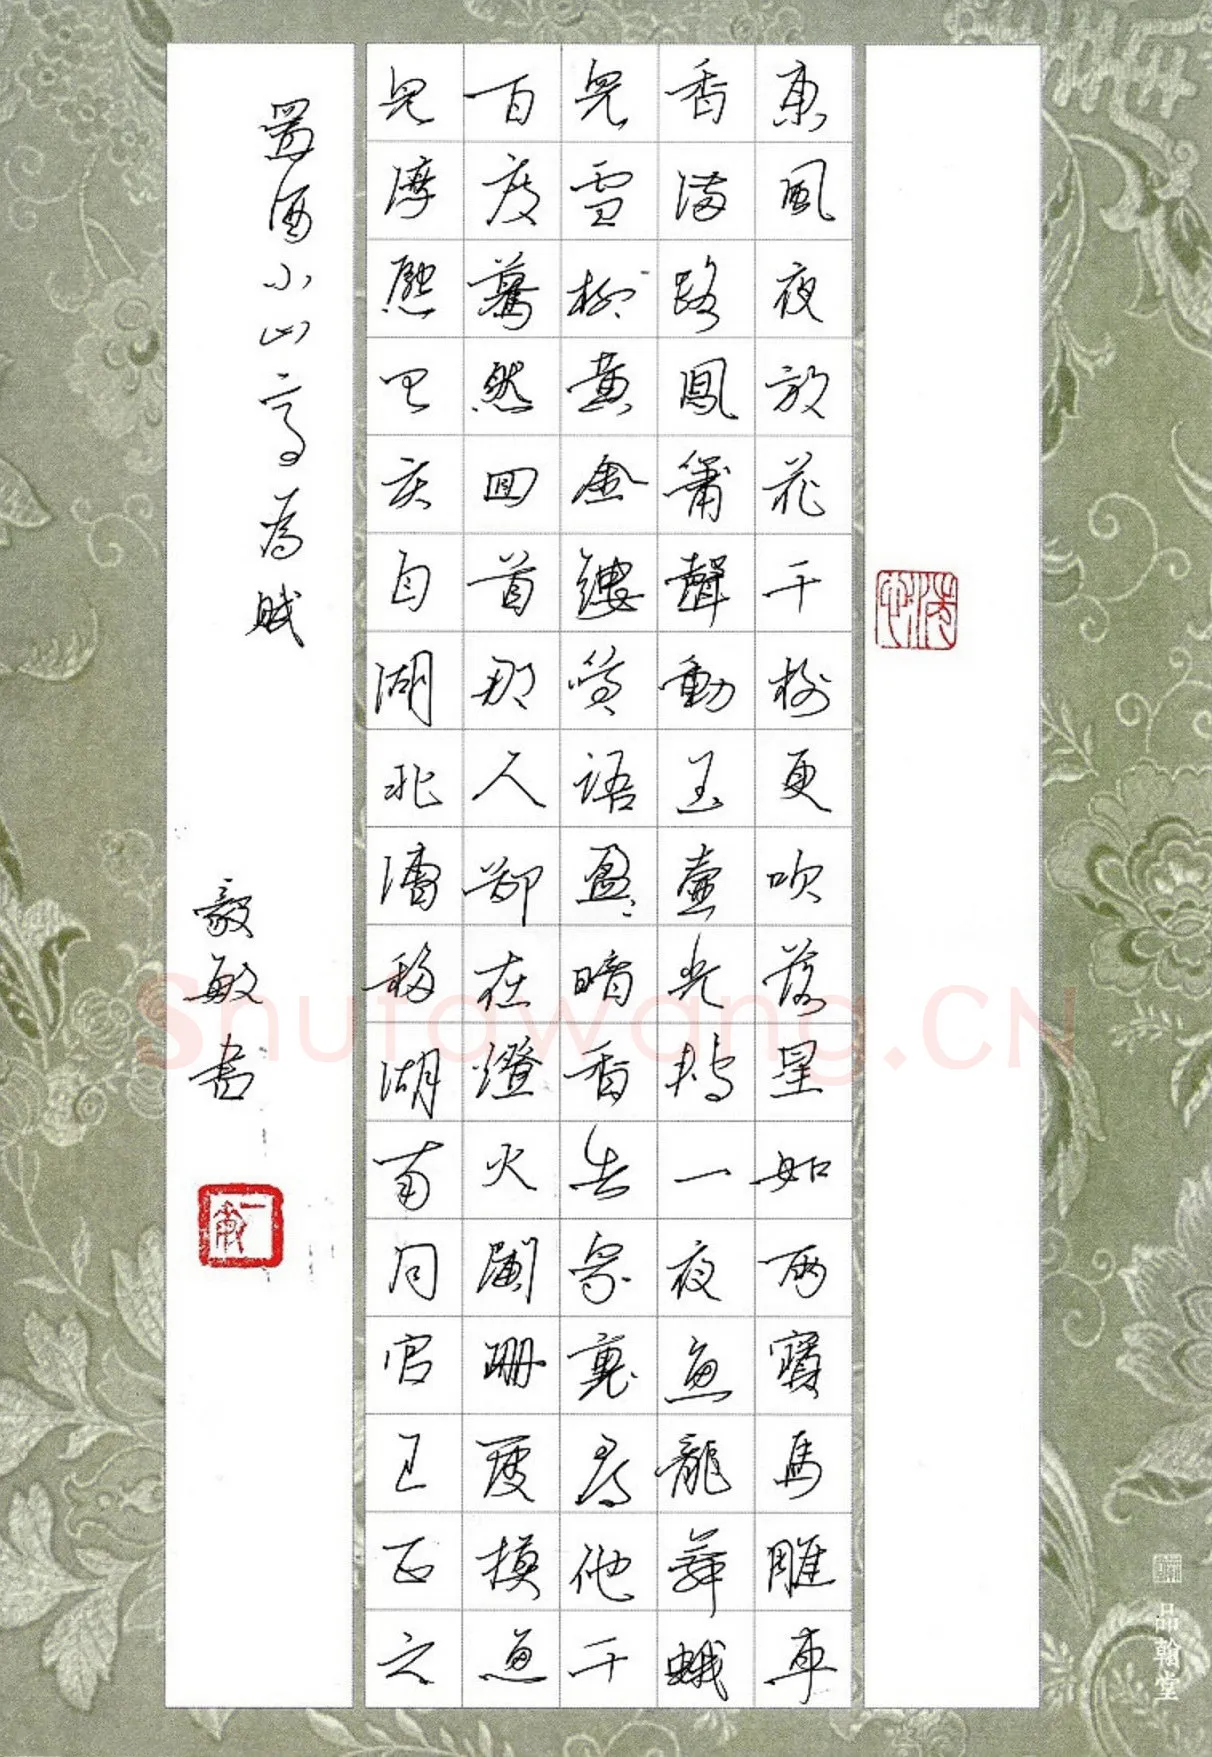 東風夜放花千樹更吹落星如雨寶馬雕車
香滿路鳳簫聲動玉壺光轉一夜魚龍舞蛾
兒雪柳黃金縷笑語盈〻暗香去眾裏尋他千
百度驀然回首那人卻在燈火闌珊處摸魚
兒淳熙己亥自湖北漕移湖南同官王正之
置酒小山亭為賦
毅敏書
品翰堂
Shufawang.CN